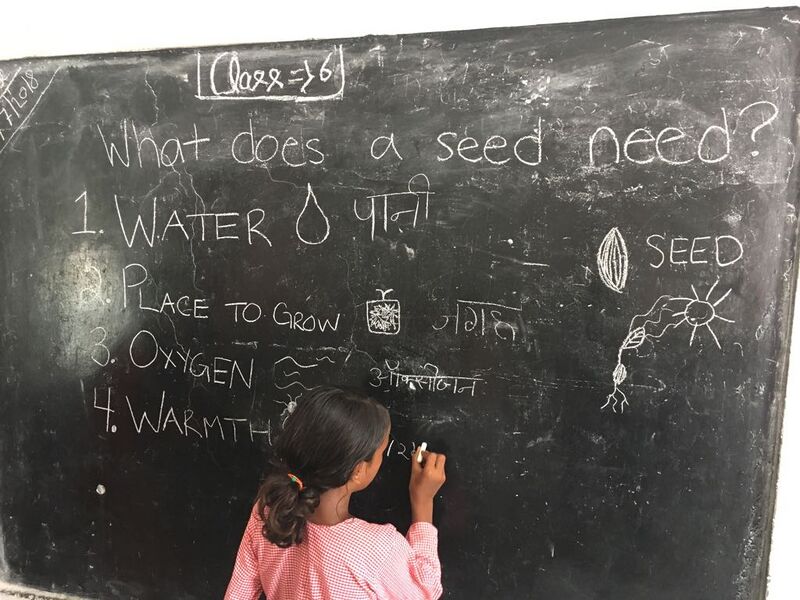 7/2018
Class => 6
What does a seed need?
1. WATER पानी
SEED
2. PLACE TO GROW जगह
3. OXYGEN ऑक्सीजन
4. WARMTH